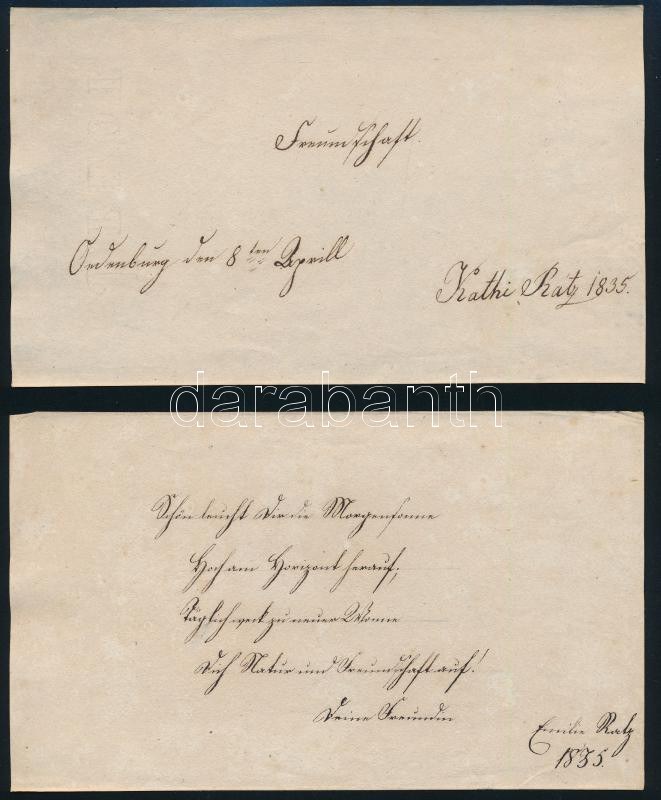 Freundschaft.
Oedenburg den 8ten Aprill
Kathi Ratz 1835.
darabanth
Schön leucht Dir die Morgensonne
Hoch am Horizont herauf;
Täglich weck zu neuer Wonne
Dich Natur und Freundschaft auf!
Deine Freundin
Emilie Ratz
1835.